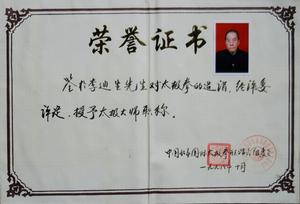 荣誉证书
鉴于李迪生先生对太极拳的造诣，经评委
评定，授予太极大师职称。
中国
一九九八年十月